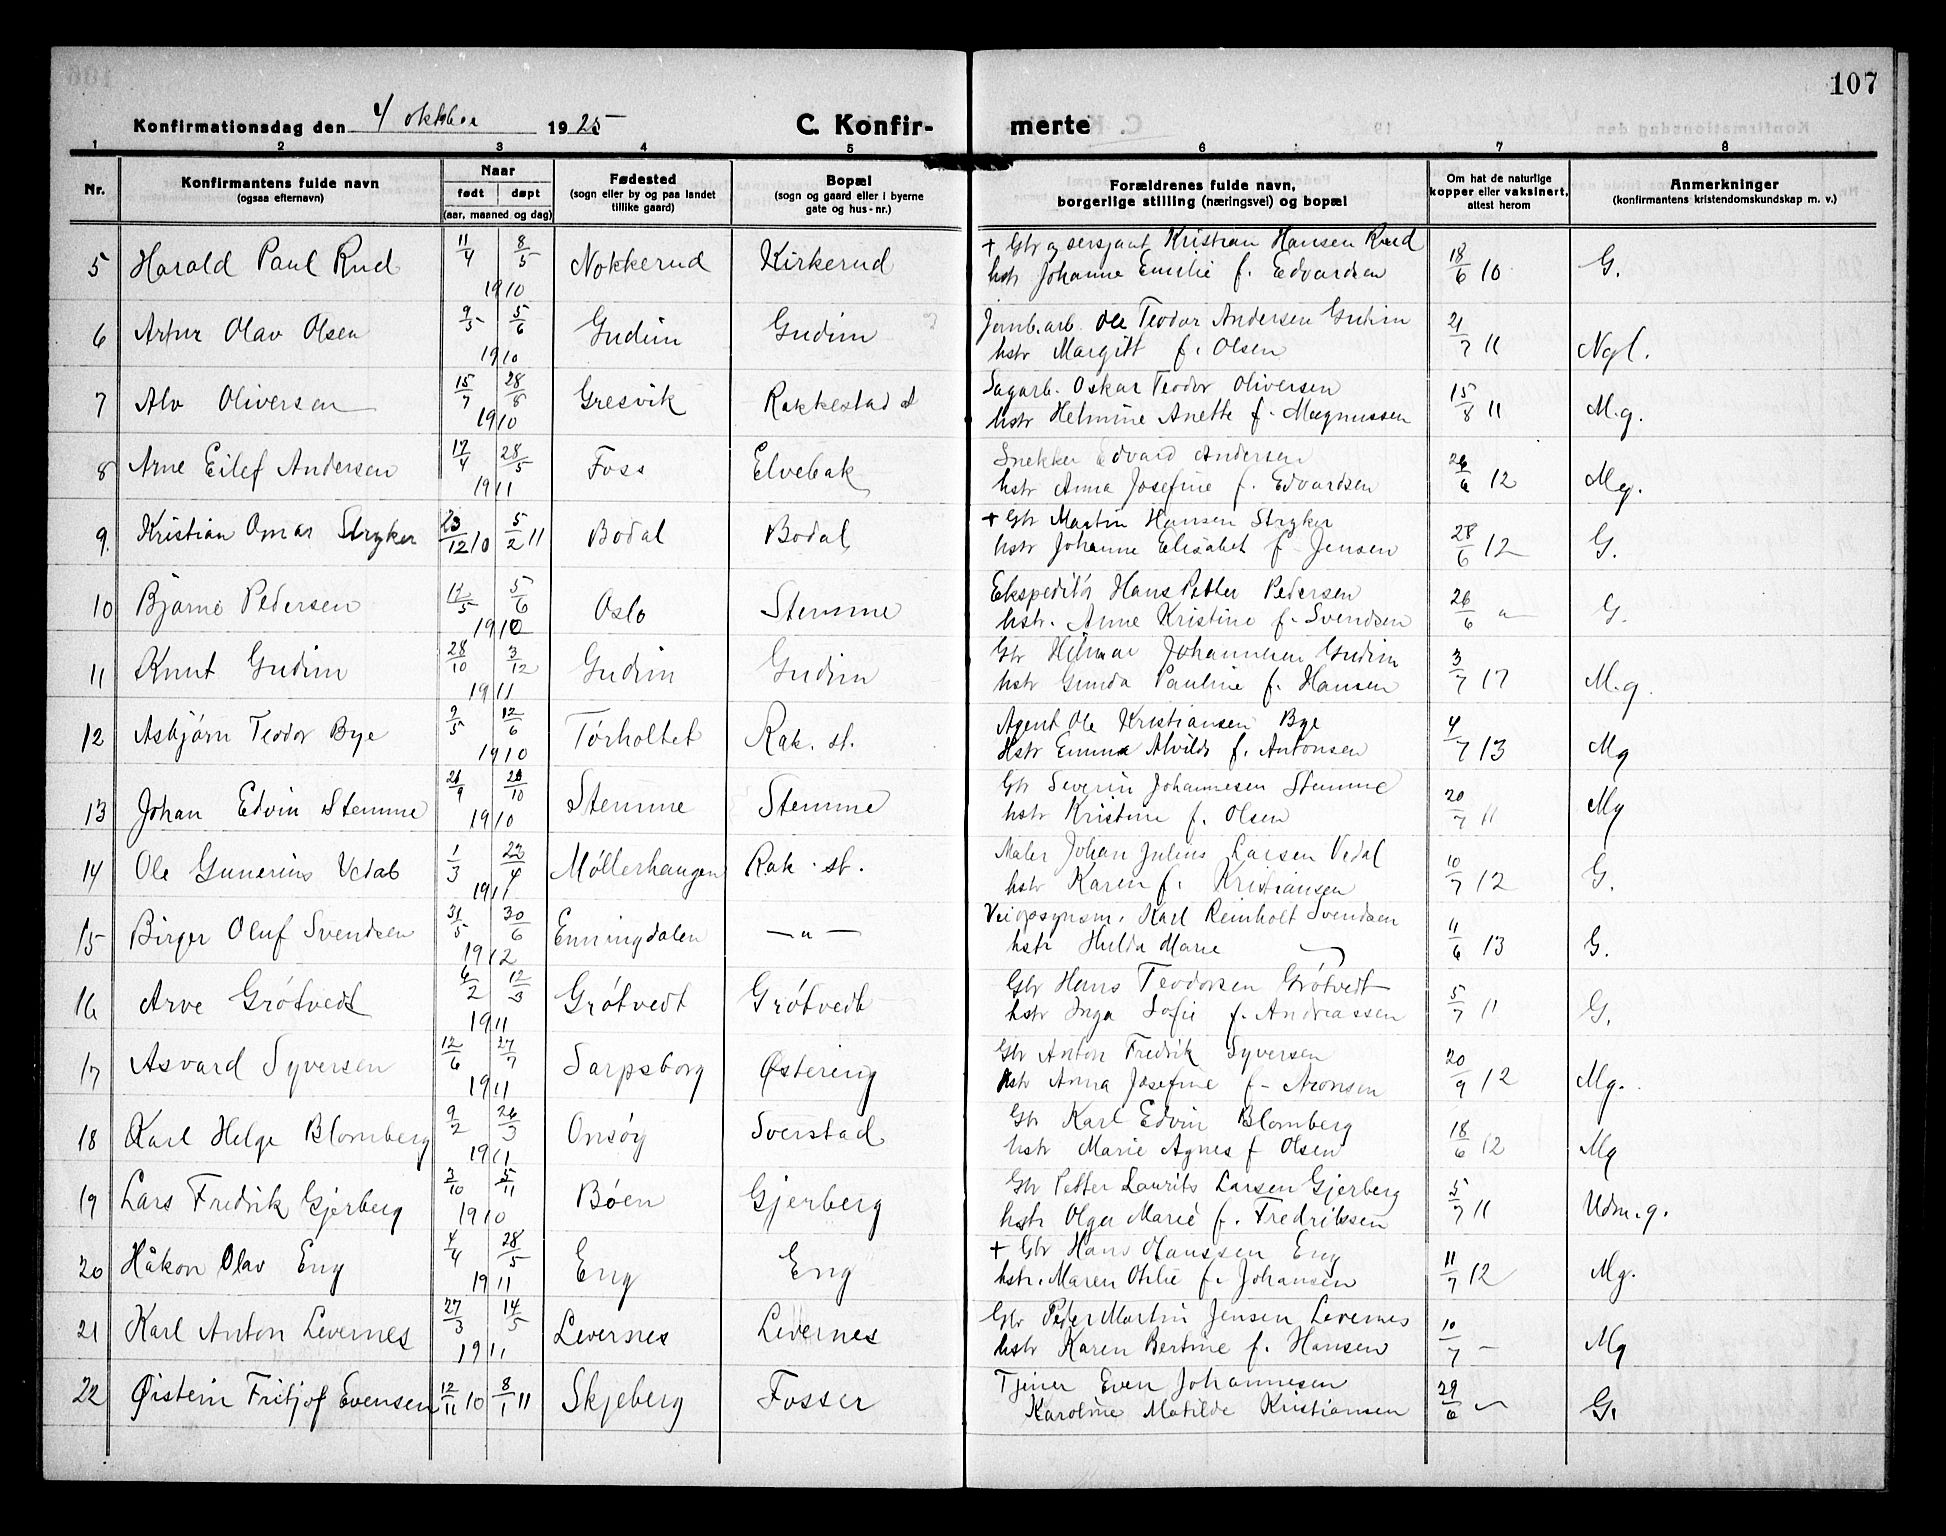 107
Konfirmationsdag den 4 oktober 1925 C. Konfir- merte
1 2 3 4 5 6 7 8
Nr. Konfirmantens fulde navn (ogsaa efternavn) Naar født døpt (aar, maaned og dag) Fødested (sogn eller by og paa landet tillike gaard) Bopæl (sogn og gaard eller i byerne gate og hus-nr.) Forældrenes fulde navn, borgerlige stilling (næringsvei) og bopæl Om hat de naturlige kopper eller vaksinert, attest herom Anmerkninger (konfirmantens kristendomskundskap m. v.)
5 Harald Paul Rud 11/4 8/5 1910 Nokkerud Kirkerud + Gbr og sersjant Kristian Hansen Rud 18/6 10 G.
hstr Johanne Emilie f. Edvardsen
6 Artur Olav Olsen 9/5 5/6 1910 Gudim Gudim Jernb.arb. Ole Teodor Andersen Gudim 21/7 11 Ngl.
hstr Margitt f. Olsen
7 Alv Oliversen 15/7 28/8 1910 Gresvik Rakkestad st Sagarb. Oskar Teodor Oliversen 15/8 11 M.g.
hstr Helmine Anette f. Magnussen
8 Arne Eilef Andersen 17/4 28/5 1911 Foss Elvebak Snekker Edvard Andersen 26/6 12 Mg.
hstr Anna Josefine f. Edvardsen
9. Kristian Omar Stryker 23/12 10 5/2 11 Bodal Bodal + Gbr Martin Hansen Stryker 28/6 12 G.
hstr Johanne Elisabet f. Jensen
10 Bjarne Pedersen 12/5 5/6 1910 Oslo Stemme Ekspeditør Hans Petter Pedersen 26/6 " G.
hstr. Anne Kristine f. Svendsen
11 Knut Gudim 28/10 3/12 1911 Gudim Gudim Gbr Hilmar Johannesen Gudim 3/7 17 M.g.
hstr Gunda Pauline f. Hansen
12 Asbjørn Teodor Bye 2/5 12/6 1910 Tørholtet Rak. st. Agent Ole Kristiansen Bye 4/7 13 Mg
Hstr Emma Alvilde f. Antonsen
13 Johan Edvin Stemme 21/9 23/10 1910 Stemme Stemme Gbr Severin Johannesen Stemme 20/7 11 Mg
hstr Kristine f. Olsen
14 Ole Gunerius Vedal 1/3 23/4 1911 Møllerhaugen Rak. st. Maler Johan Julius Larsen Vedal 10/7 12 G.
hstr Karen f. Kristiansen
15 Birger Oluf Svendsen 31/5 30/6 1912 Enningdalen — " — Veiopsynsm. Karl Reinholt Svendsen 11/6 13 G.
hstr Hulda Marie
16 Arve Grøtvedt 6/2 12/3 1911 Grøtvedt Grøtvedt Gbr Hans Teodorsen Grøtvedt 5/7 11 G.
hstr Inga Sofie f. Andreassen
17 Asvard Syversen 12/6 27/7 1911 Sarpsborg Østereng Gbr Anton Fredrik Syversen 20/9 12 Mg.
hstr Anna Josefine f. Aronsen
18 Karl Helge Blomberg 9/2 26/3 1911 Onsøy Sverstad Gbr Karl Edvin Blomberg 18/6 12 Mg
hstr Marie Agnes f Olsen
19 Lars Fredrik Gjerberg 3/10 5/11 1910 Bøen Gjerberg Gbr Petter Laurits Larsen Gjerberg 5/7 11 Udm.g.
hstr Olga Marie f. Fredriksen
20 Håkon Olav Eng 4/4 28/5 1911 Eng Eng + Gbr Hans Hanssen Eng 11/7 12 Mg.
hstr. Maren Otilie f. Johansen
21 Karl Anton Levernes 27/3 14/5 1911 Levernes Levernes Gbr Peder Martin Jensen Levernes 10/7 - Mg
hstr Karen Bertine f. Hansen
22 Øistein Fritjof Evensen 12/11 10 8/1 11 Skjeberg Fosser Tjener Even Johannesen 29/6 " G.
Karoline Matilde Kristiansen